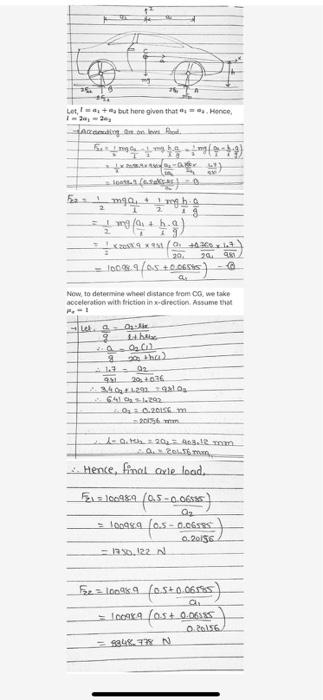 a₁ a₂
z
h
mg
2Fz₂ B 2Fz₁ A
Let, l = a₁ + a₂ but here given that a₁ = a₂. Hence,
l = 2a₁ = 2a₂
→ According are on level Road.
Fz₁ = 1/2 mg a₂/l - 1/2 mg h/l a/g = 1/2 mg (a₂/l - h/l a/g)
= 10098.9 (0.5 - 0.06585/a₂) - ①
Fz₂ = 1/2 mg a₁/l + 1/2 mg h/l a/g
= 1/2 mg (a₁/l + h/l a/g)
= 1/2 × 2058.9 × 9.81 (a₁/2a₁ + 0.760/2a₁ × 1.7/9.81)
= 10098.9 (0.5 + 0.06585/a₁) - ②
Now, to determine wheel distance from CG, we take
acceleration with friction in x-direction. Assume that
μₓ = 1
→ Let. a/g = a₂ μx / l + h μx
∴ a/g = a₂(1) / 2a₂ + h(1)
∴ 1.7/9.81 = a₂ / 2a₂ + 0.76
∴ 3.4 a₂ + 1.292 = 9.81 a₂
∴ 6.41 a₂ = 1.292
∴ a₂ = 0.20156 m
= 201.56 mm
∴ l = a₁ + a₂ = 2a₂ = 403.12 mm
∴ a₁ = 201.56 mm
∴ Hence, final axle load,
Fz₁ = 10098.9 (0.5 - 0.06585/a₂)
= 10098.9 (0.5 - 0.06585/0.20156)
= 1750.122 N
Fz₂ = 10098.9 (0.5 + 0.06585/a₁)
= 10098.9 (0.5 + 0.06585/0.20156)
= 8348.778 N